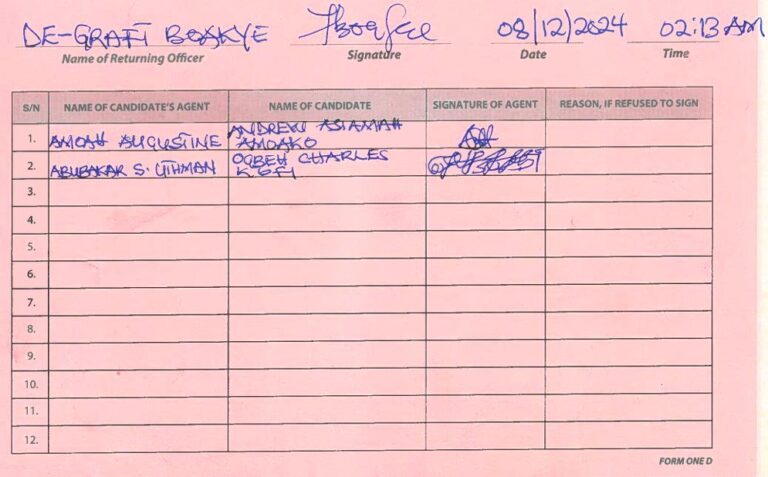 DE-GRAFT BOAKYE 08/12/2024 02:13 AM
Name of Returning Officer Signature Date Time
S/N NAME OF CANDIDATE'S AGENT NAME OF CANDIDATE SIGNATURE OF AGENT REASON, IF REFUSED TO SIGN
1. AMOAH AUGUSTINE ANDREW ASIAMAH
AMOAKO
2. ABUBAKAR S. UTHMAN OGBEH CHARLES
KOFI
3.
4.
5.
6.
7.
8.
9.
10.
11.
12.
FORM ONE D